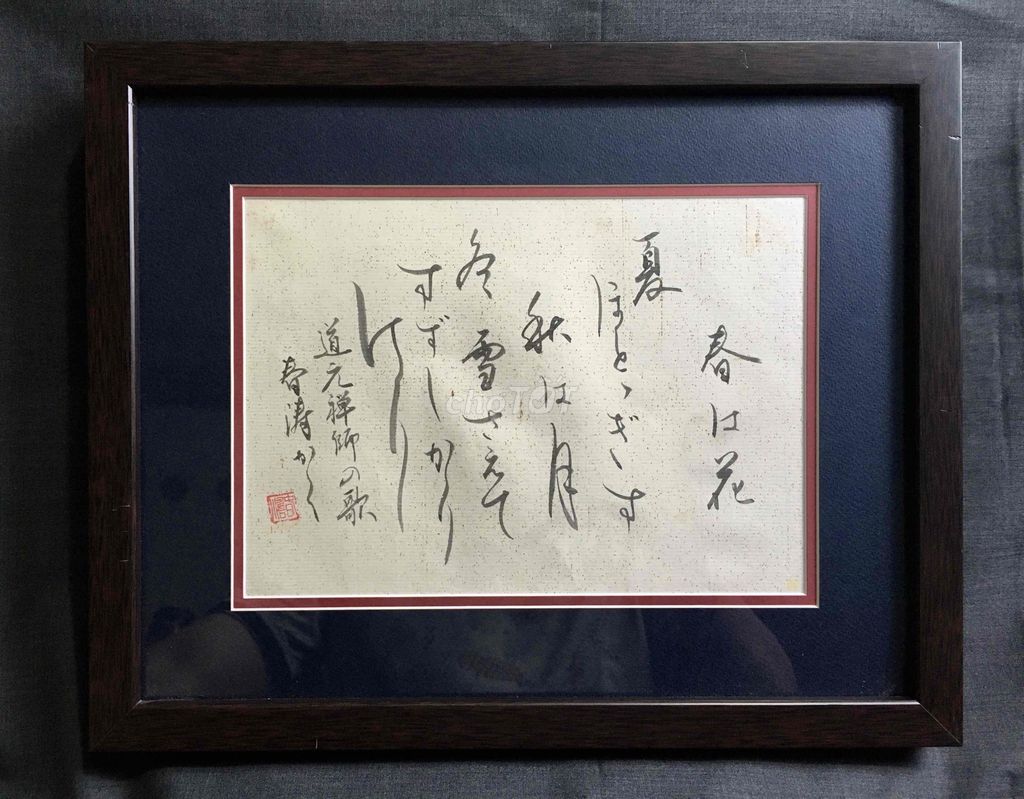 春は花
夏
ほとゝぎす
秋は月
冬雪さえて
すずしかり
けり
道元禅師の歌
春涛かく
chợTỐT